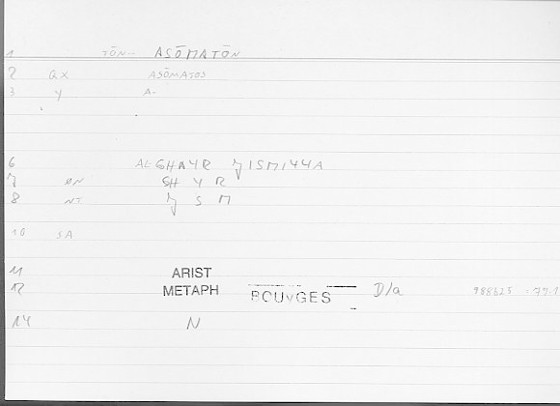 1 TŌN- ASŌMATŌN
2 GX ASŌMATOS
3 Y A-
6 ALGHAYR JISMIYYA
7 GH Y R
8 J S M
10 SA
11 ARIST
12 METAPH BOUYGES D/a
14 N